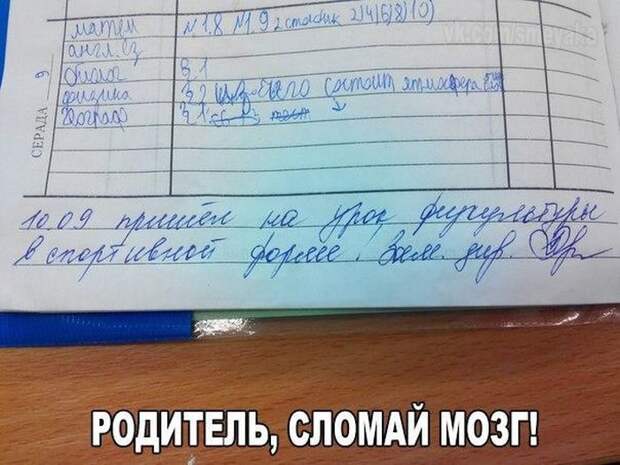 vk.com/smeyaka
матем №1.8 №1.9 2 столбик 2)4)6)8)10)
англ.яз
биолог §1
физика §2 из чего состоит атмосфера
географ §1
СЕРАДА 9
10.09 пришёл на урок физкультуры
в спортивной форме! Зам. дир.
РОДИТЕЛЬ, СЛОМАЙ МОЗГ!